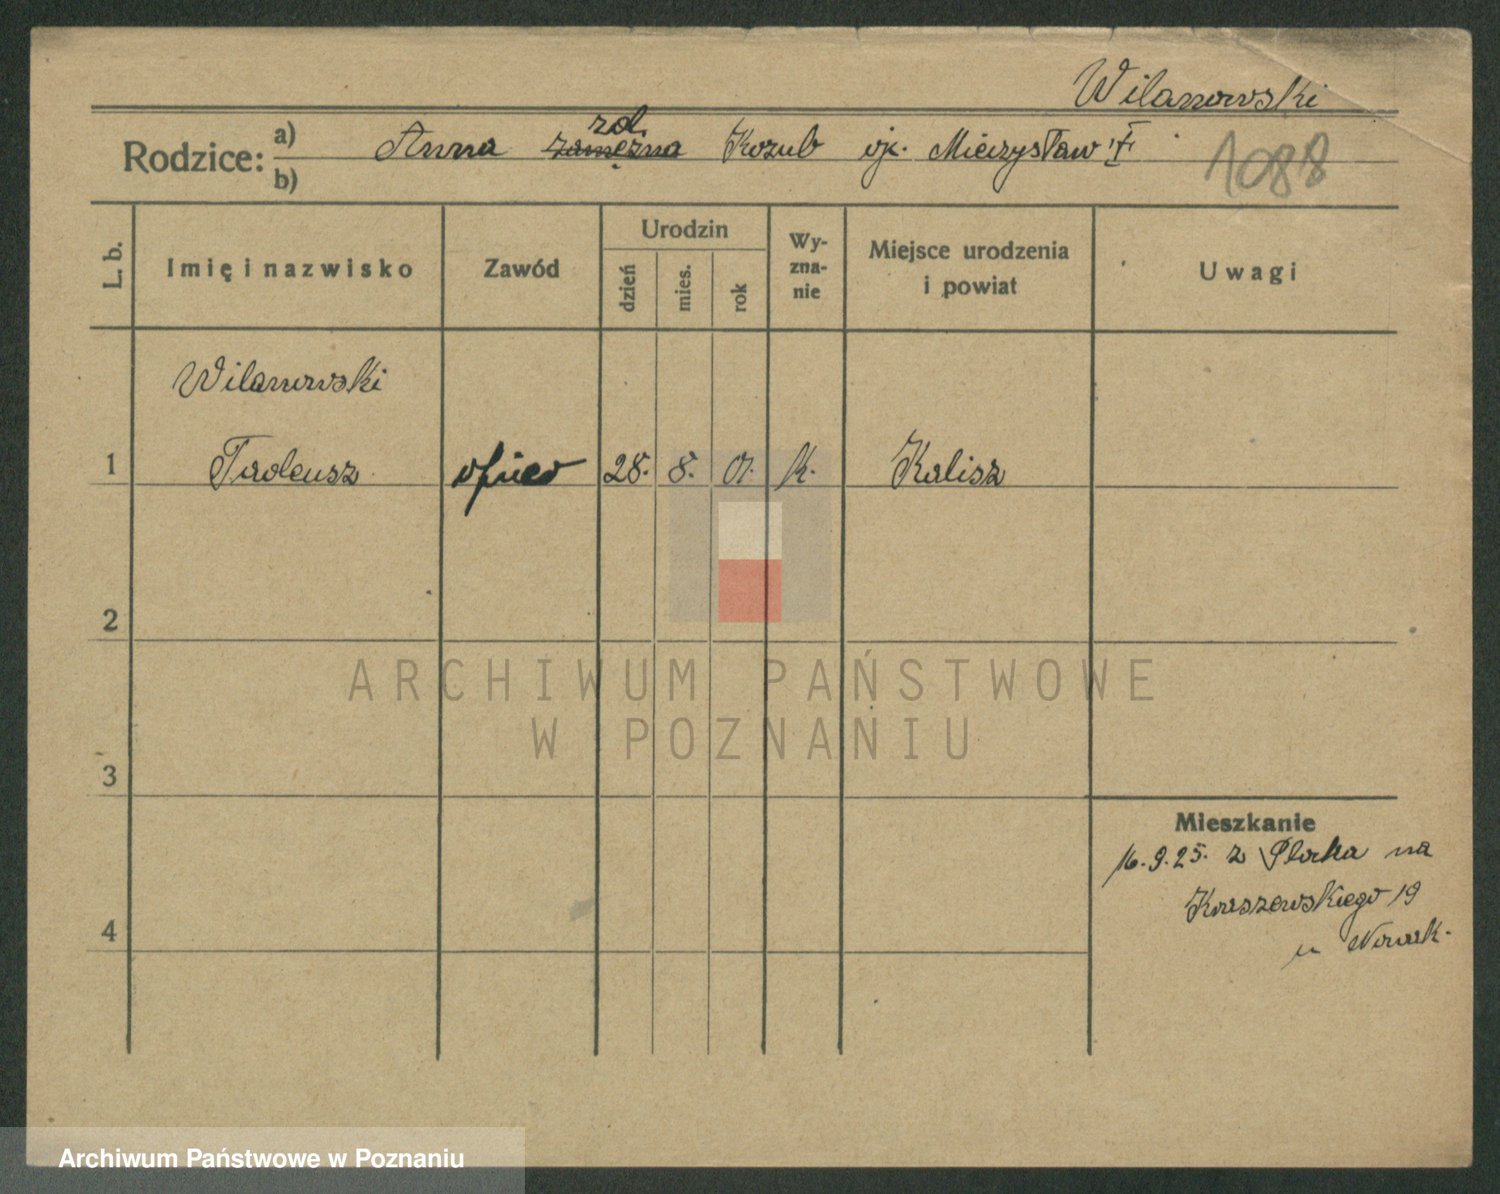 Wilanowski
Rodzice: a) Anna zamężna zd. Kozub oj. Mieczysław
b)
1088
L. b.
Imię i nazwisko
Zawód
Urodzin
dzień
mies.
rok
Wy-
zna-
nie
Miejsce urodzenia
i powiat
Uwagi
Wilanowski
1 Tadeusz 28. 8. 01. k. Kalisz
2
3
4
Mieszkanie
16.9.25. z Płocka na
Kraszewskiego 19
u Nowak.
ARCHIWUM PAŃSTWOWE
W POZNANIU
Archiwum Państwowe w Poznaniu